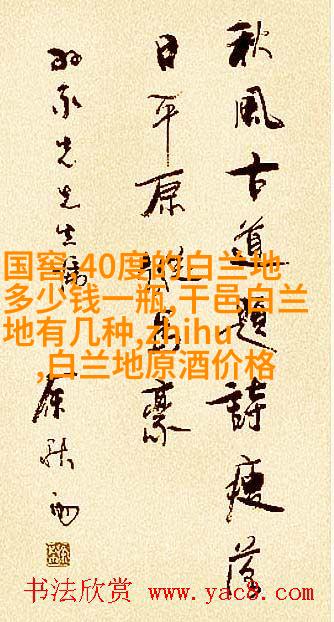 秋風古道題詩瘦落
日平原馬豪
先生
余秋雨
国窖 40度的白兰地
多少钱一瓶,干邑白兰
地有几种,zhihu
,白兰地原酒价格
书法欣赏 www.yac8.com